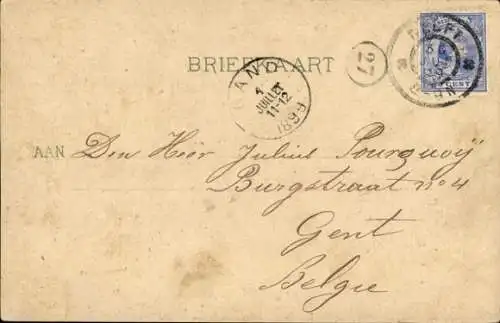 BRIEFKAART
27
DELFT
CENT
GAND
1
JUILLET
11-12
1899
AAN Den Heer Julius Pourquoÿ
Burgstraat no 4
Gent
Belgie